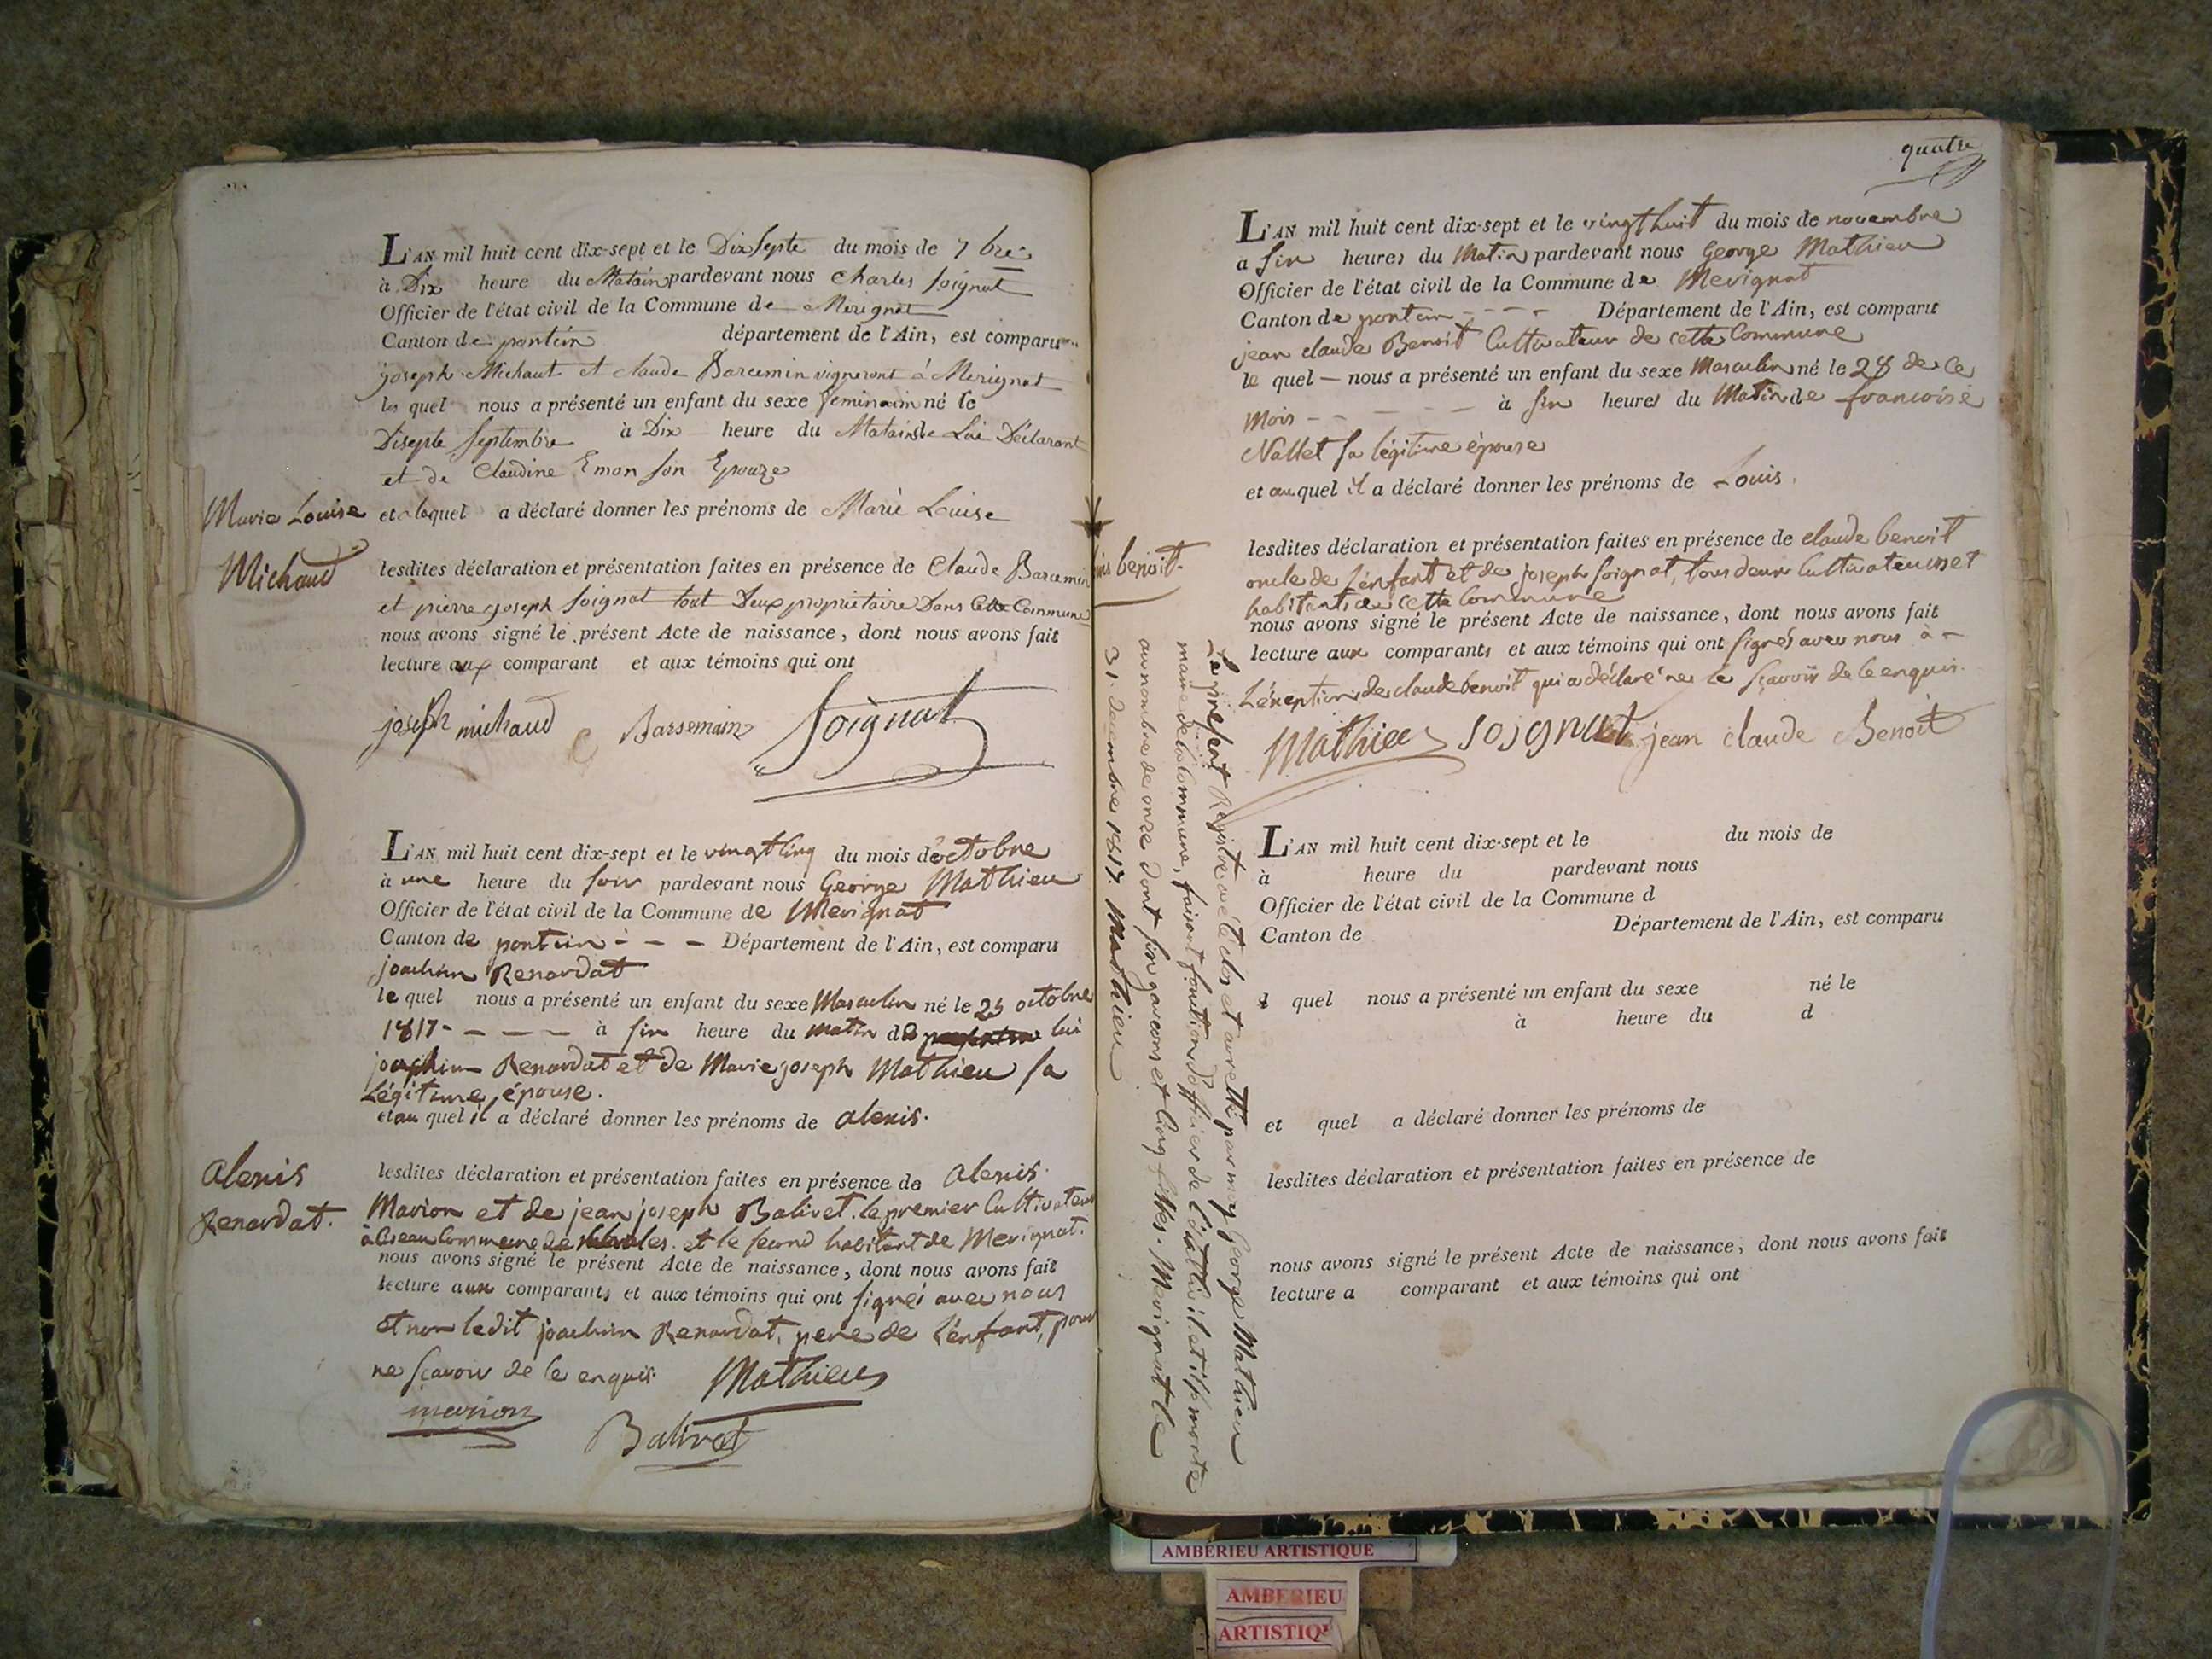 L'AN mil huit cent dix-sept et le Dix Septe du mois de 7 bre
à Dix heure du Matain pardevant nous Charles Soignat
Officier de l'état civil de la Commune de Merignat
Canton de pontin département de l'Ain, est comparu
joseph Michaut et claude Barcemin vigneront á Merignat
les quel nous a présenté un enfant du sexe feminain né le
Disepte Septembre à Dix heure du Matain de Lui Déclarant
et de Claudine Emon son Epouze
Marie Louise
Michaud
et a laquel a déclaré donner les prénoms de Marie Louise
lesdites déclaration et présentation faites en présence de Claude Barcemin
et pierre joseph Soignat tout Deux proprietaire Dans Cette Commune
nous avons signé le présent Acte de naissance, dont nous avons fait
lecture aux comparant et aux témoins qui ont
joseph michaud C Barsemain Soignat
L'AN mil huit cent dix-sept et le vingt cinq du mois d'octobre
à une heure du soir pardevant nous George Mathieu
Officier de l'état civil de la Commune de Merignat
Canton de pontin - - - Département de l'Ain, est comparu
joachim Renardat
le quel nous a présenté un enfant du sexe Masculin né le 25 octobre
1817 - - - - à six heure du matin de lui
joachim Renardat et de Marie joseph Mathieu sa
Légitime épouse.
et au quel il a déclaré donner les prénoms de alexis.
alexis
Renardat.
lesdites déclaration et présentation faites en présence de alexis
Marion et de jean joseph Balivet. le premier Cultivateur
à Commune de et le second habitant de Merignat.
nous avons signé le présent Acte de naissance, dont nous avons fait
lecture aux comparants et aux témoins qui ont signés avec nous
et non ledit joachim Renardat, pere de L'enfant, pour
ne sçavoir de le enquis. Mathieu
marion
Balivet
quatre
L'AN mil huit cent dix-sept et le vingt huit du mois de novembre
a six heures du Matin pardevant nous George Mathieu
Officier de l'état civil de la Commune de Merignat
Canton de pontin - - - Département de l'Ain, est comparu
jean claude Benoit Cultivateur de cette Commune
le quel - nous a présenté un enfant du sexe Masculin né le 28 de ce
Mois - - - - - à six heures du Matin de francoise
Nallet sa légitime épouse
et au quel il a déclaré donner les prénoms de Louis.
benoit.
lesdites déclaration et présentation faites en présence de claude benoit
oncle de L'enfant et de joseph soignat, tous deux Cultivateurs et
habitants de cette Commune
nous avons signé le présent Acte de naissance, dont nous avons fait
lecture aux comparants et aux témoins qui ont signés avec nous à -
L'exeption de claude benoit qui a déclaré ne le sçavoir de le enquis.
Mathieu soignat jean claude Benoit
Le present Registre a été clos et arretté par moy George Mathieu
maire de la Commune, faisant fonction d'officier de l'état civil et il se monte
au nombre de onze dont six garcons et cinq filles. Merignat le
31 decembre 1817. Mathieu
L'AN mil huit cent dix-sept et le du mois de
à heure du pardevant nous
Officier de l'état civil de la Commune d
Canton de Département de l'Ain, est comparu
l quel nous a présenté un enfant du sexe né le
à heure du d
et quel a déclaré donner les prénoms de
lesdites déclaration et présentation faites en présence de
nous avons signé le présent Acte de naissance, dont nous avons fait
lecture a comparant et aux témoins qui ont
AMBERIEU ARTISTIQUE
AMBERIEU
ARTISTIQU